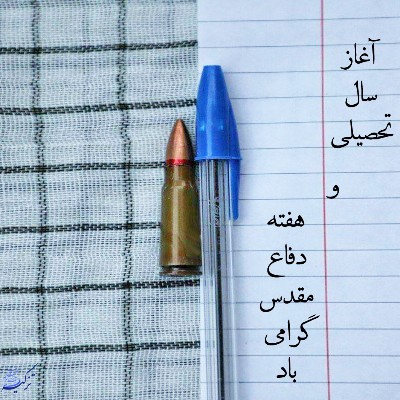 آغاز
سال
تحصیلی
و
هفته
دفاع
مقدس
گرامی
باد